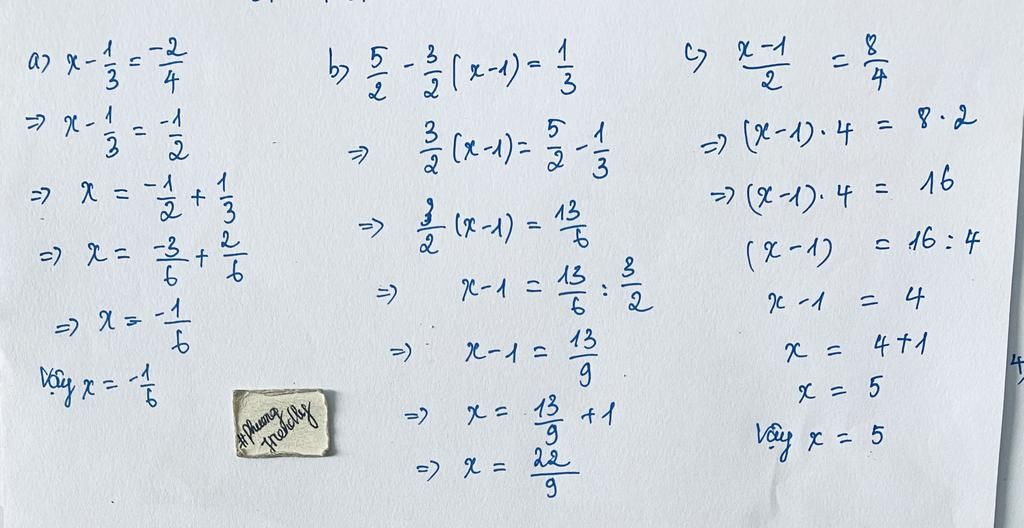 a) x - 1/3 = -2/4
=> x - 1/3 = -1/2
=> x = -1/2 + 1/3
=> x = -3/6 + 2/6
=> x = -1/6
Vậy x = -1/6
b) 5/2 - 3/2 (x-1) = 1/3
=> 3/2 (x-1) = 5/2 - 1/3
=> 3/2 (x-1) = 13/6
=> x-1 = 13/6 : 3/2
=> x-1 = 13/9
=> x = 13/9 + 1
=> x = 22/9
c) x-1/2 = 8/4
=> (x-1) . 4 = 8 . 2
=> (x-1) . 4 = 16
(x-1) = 16 : 4
x-1 = 4
x = 4+1
x = 5
Vậy x = 5
#Phuong
friendly
4